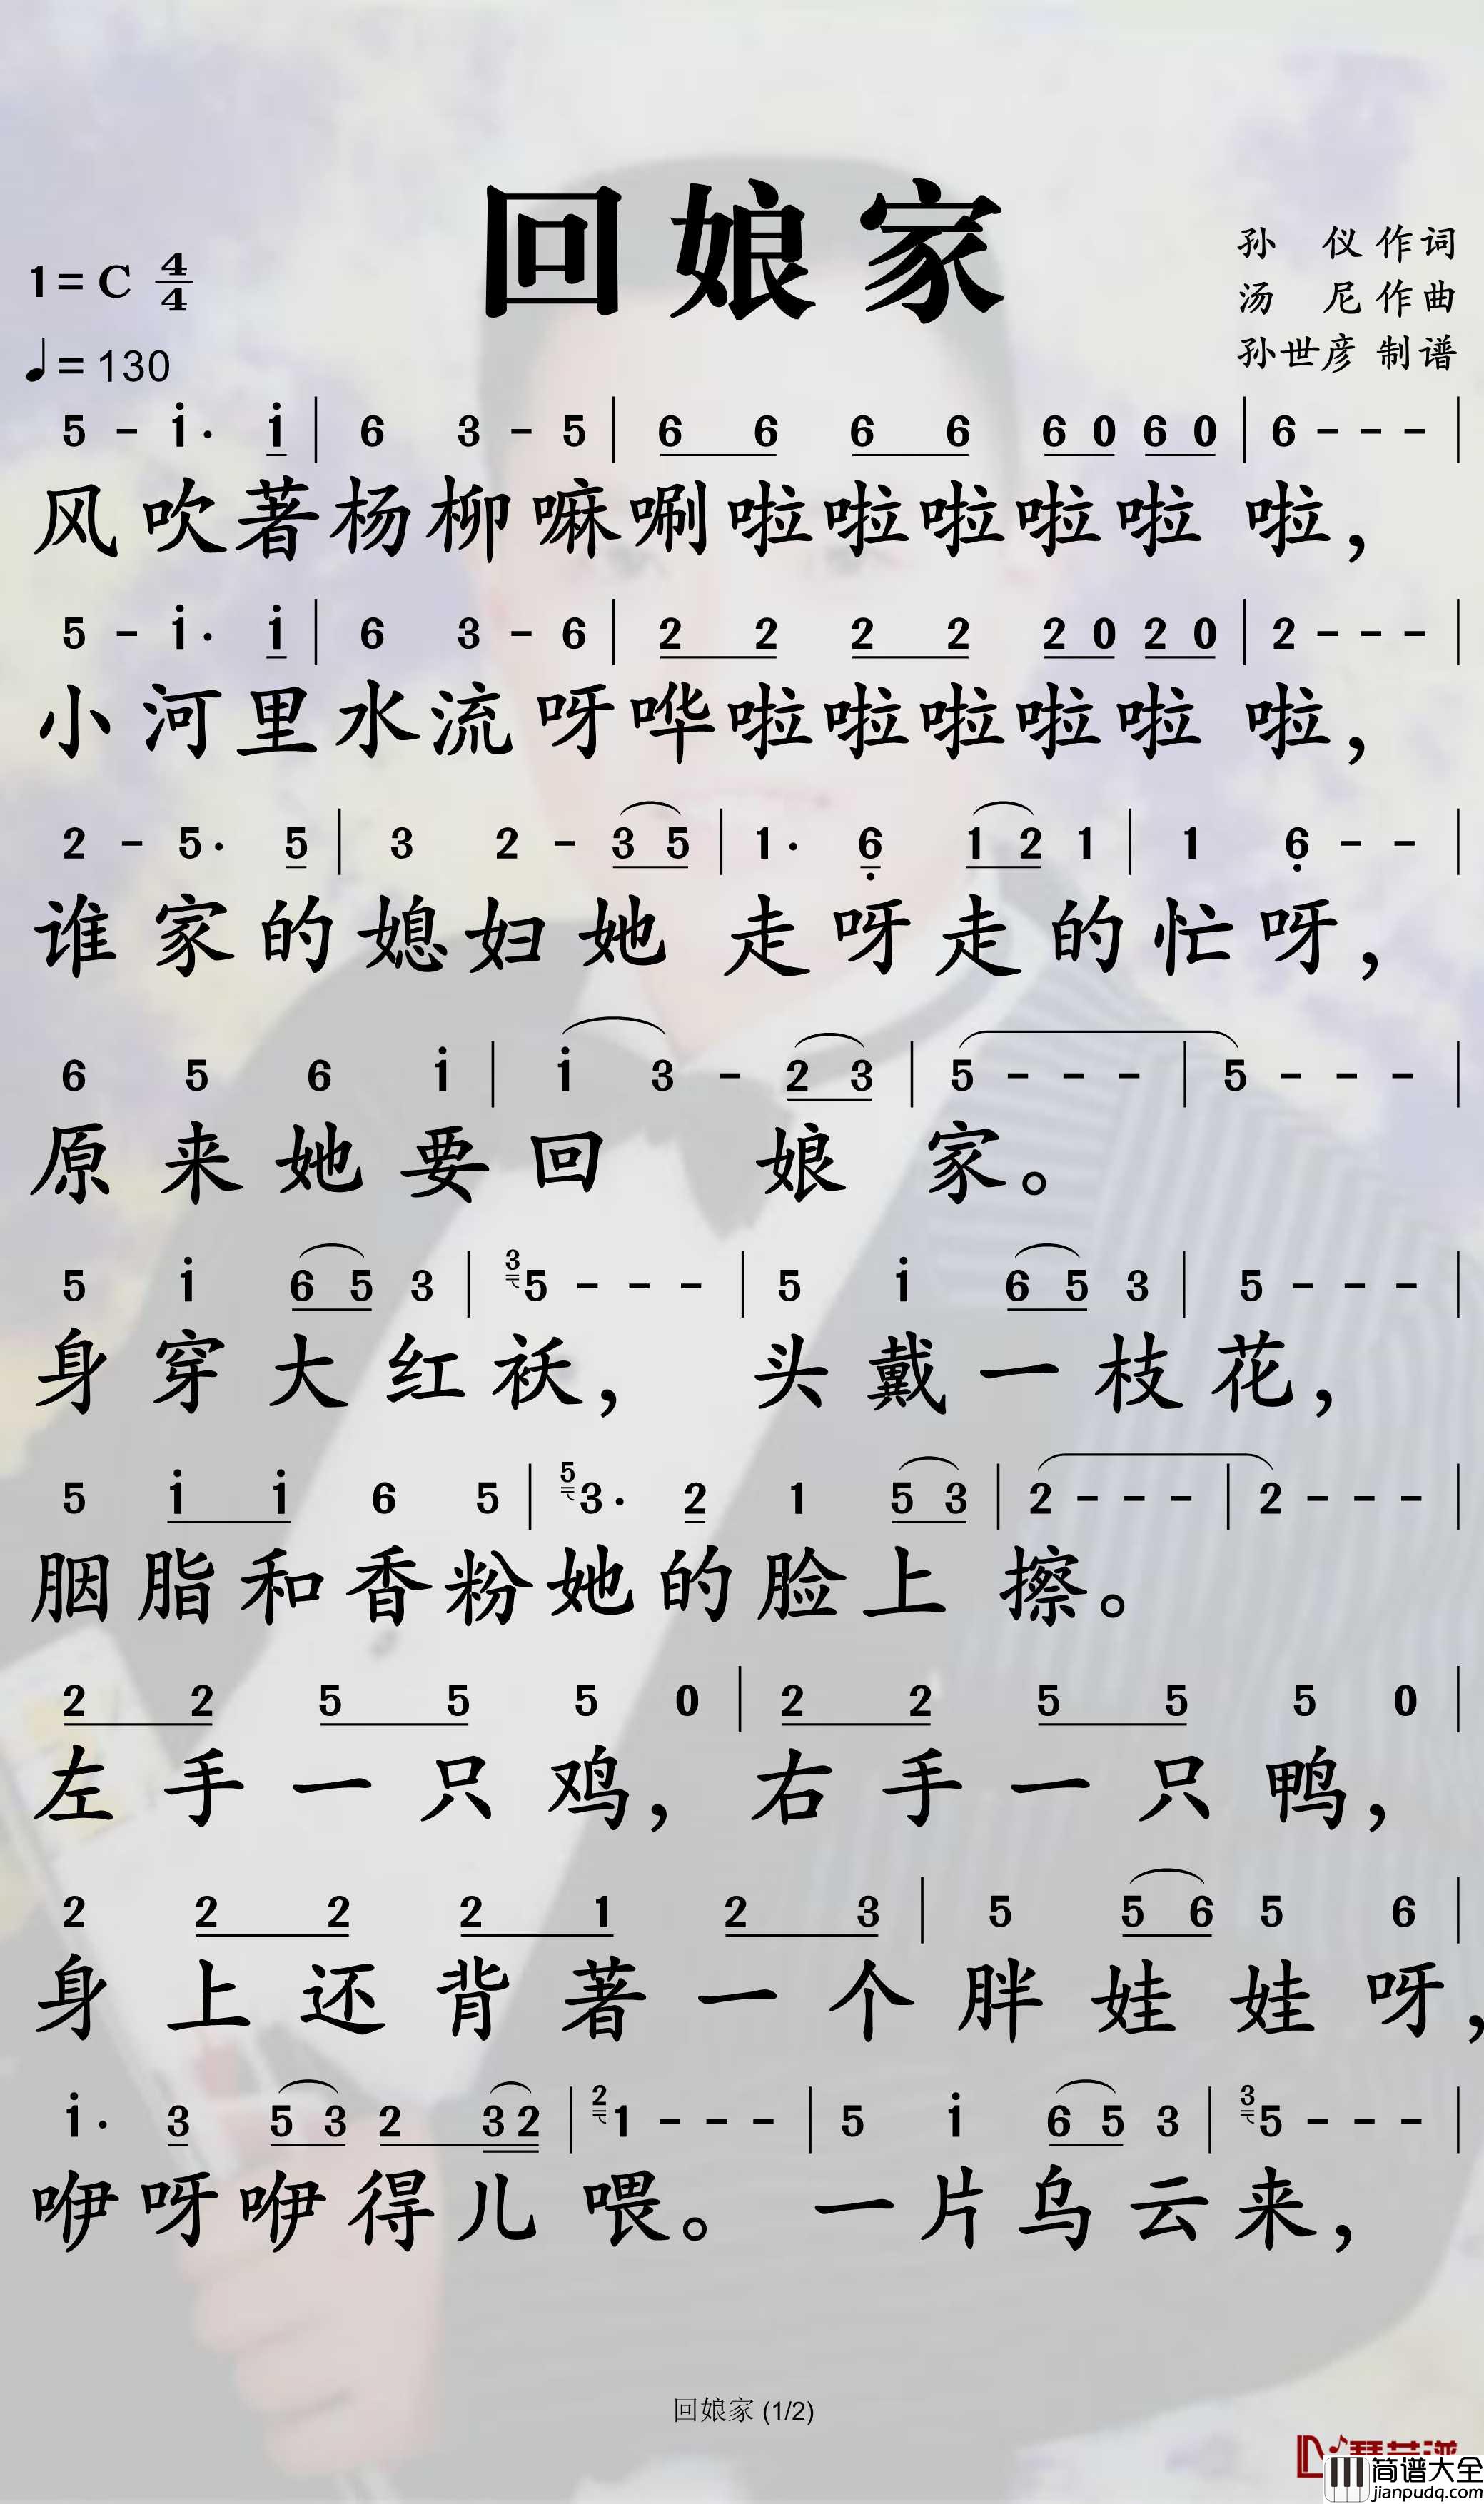 回娘家
1=C 4/4
♩=130
孙 仪 作词
汤 尼 作曲
孙世彦 制谱
5 - i· i | 6 3 - 5 | 6 6 6 6 6 0 6 0 | 6 - - - |
风吹著杨柳嘛唰啦啦啦啦啦 啦，
5 - i· i | 6 3 - 6 | 2 2 2 2 2 0 2 0 | 2 - - - |
小河里水流呀哗啦啦啦啦啦 啦，
2 - 5· 5 | 3 2 - 3 5 | 1· 6̣ 1 2 1 | 1 6̣ - - |
谁家的媳妇她 走呀走的忙呀，
6 5 6 i | i 3 - 2 3 | 5 - - - | 5 - - - |
原来她要回 娘 家。
5 i 6 5 3 | 3 5 - - - | 5 i 6 5 3 | 5 - - - |
身穿大红袄， 头戴一枝花，
5 i i 6 5 | 5 3· 2 1 5 3 | 2 - - - | 2 - - - |
胭脂和香粉她的脸上 擦。
2 2 5 5 5 0 | 2 2 5 5 5 0 |
左手一只鸡，右手一只鸭，
2 2 2 2 1 2 3 | 5 5 6 5 6 |
身上还背著一个胖娃娃呀，
i· 3 5 3 2 3 2 | 2 1 - - - | 5 i 6 5 3 | 3 5 - - - |
咿呀咿得儿 喂。 一片乌云来，
回娘家 (1/2)
简谱大全
jianpudq.com